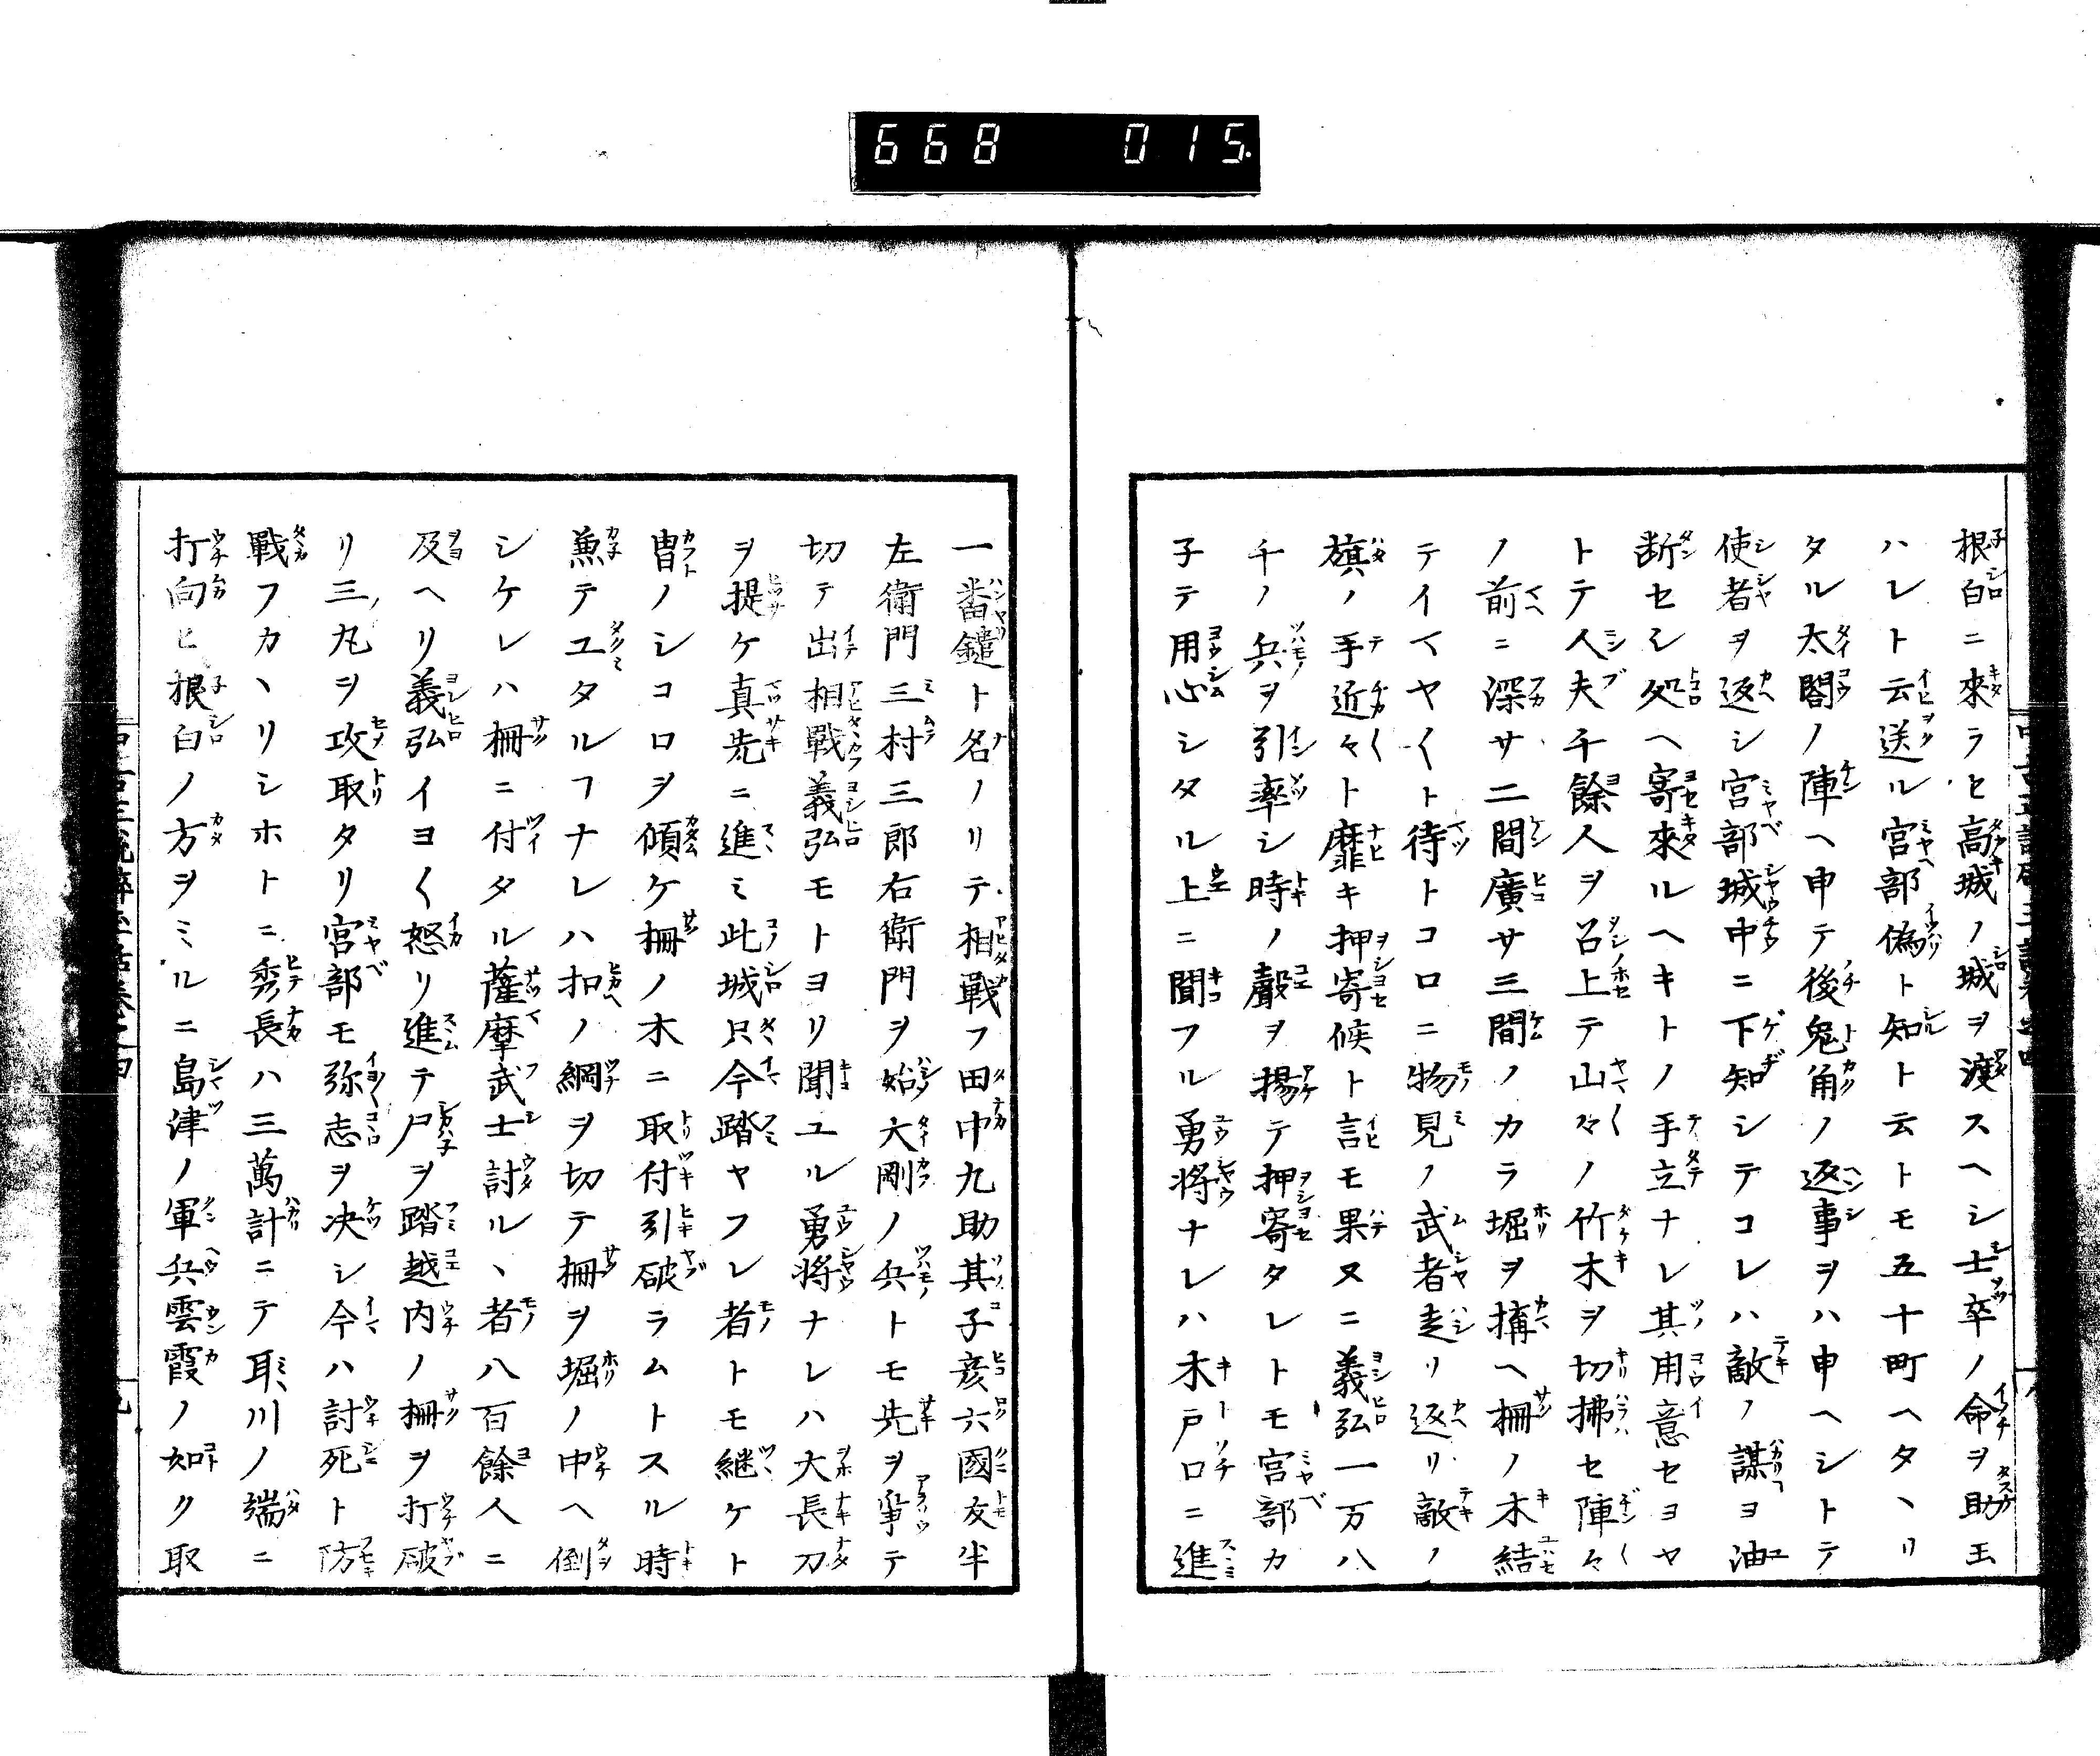 668 015.
根白ニ來ラヒ高城ノ城ヲ渡スヘシ士卒ノ命ヲ助玉
ハレト云送ル宮部偽ト知ト云トモ五十町ヘタヽリ
タル太閤ノ陣ヘ申テ後兎角ノ返事ヲハ申ヘシトテ
使者ヲ返シ宮部城中ニ下知シテコレハ敵ノ謀ヨ油
断セシ処ヘ寄來ルヘキトノ手立ナレ其用意セヨヤ
トテ人夫千餘人ヲ召上テ山々ノ竹木ヲ切拂セ陣々
ノ前ニ深サ二間廣サ三間ノカラ堀ヲ搆ヘ柵ノ木結
テイマヤ〱ト待トコロニ物見ノ武者走リ返リ敵ノ
旗ノ手近々ト靡キ押寄候ト言モ果ヌニ義弘一万八
千ノ兵ヲ引率シ時ノ聲ヲ揚テ押寄タレトモ宮部カ
子テ用心シタル上ニ聞フル勇将ナレハ木戸口ニ進
一番鑓ト名ノリテ相戦フ田中九助其子彦六國友半
左衛門三村三郎右衛門ヲ始大剛ノ兵トモ先ヲ爭テ
切テ出相戰義弘モトヨリ聞ユル勇将ナレハ大長刀
ヲ提ケ真先ニ進ミ此城只今踏ヤフレ者トモ継ケト
冑ノシコロヲ傾ケ柵ノ木ニ取付引破ラムトスル時
兼テユタルフナレハ扣ノ綱ヲ切テ柵ヲ堀ノ中ヘ倒
シケレハ柵ニ付タル薩摩武士討ルヽ者八百餘人ニ
及ヘリ義弘イヨ〱怒リ進テ尸ヲ踏越内ノ柵ヲ打破
リ三ノ丸ヲ攻取タリ宮部モ弥志ヲ决シ今ハ討死ト防
戰フカヽリシホトニ秀長ハ三萬計ニテ耳川ノ端ニ
打向ヒ根白ノ方ヲミルニ島津ノ軍兵雲霞ノ如ク取